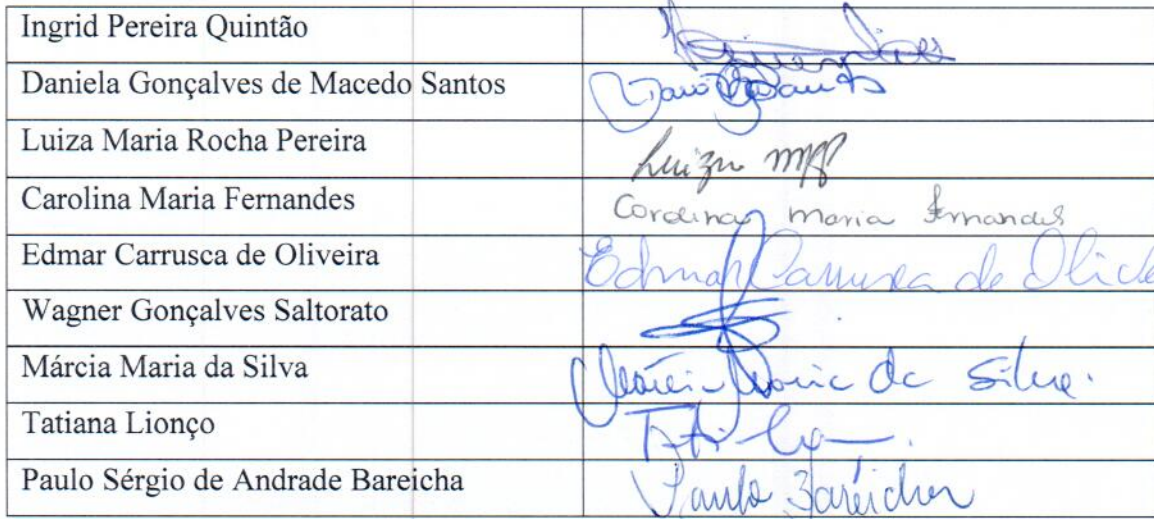 Ingrid Pereira Quintão
Daniela Gonçalves de Macedo Santos
Luiza Maria Rocha Pereira Luiza MRP
Carolina Maria Fernandes Carolina Maria Fernandes
Edmar Carrusca de Oliveira Edmar Carrusca de
Wagner Gonçalves Saltorato
Márcia Maria da Silva Márcia Maria da Silva.
Tatiana Lionço
Paulo Sérgio de Andrade Bareicha Paulo Bareicha